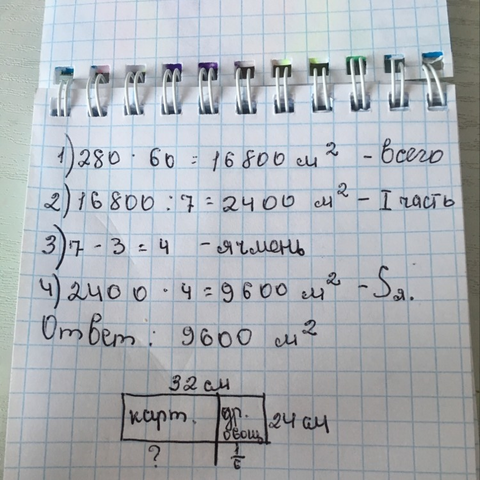 1) 280 · 60 = 16800 м² - всего
2) 16800 : 7 = 2400 м² - I часть
3) 7 - 3 = 4 - ячмень
4) 2400 · 4 = 9600 м² - Sя.
Ответ: 9600 м²
32 см
карт. др. овощ 24 см
? 1/6